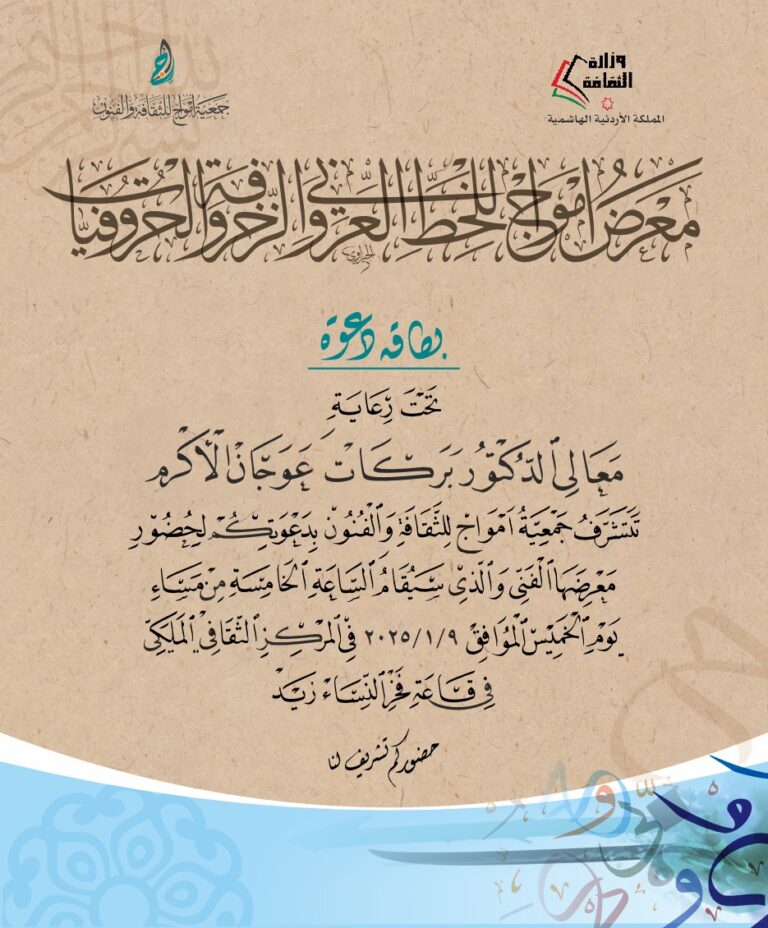 وزارة
الثقافة
المملكة الأردنية الهاشمية
جمعية أمواج للثقافة والفنون
مَعرَضُ أمْوَاج للخطِّ العَرَبي والزّخرَفة والحُرُوفيّات
بطاقة دعوة
تَحْتَ رِعَايَةِ
مَعَالِي الدّكتُور بَرَكَات عَوَجَان الْأَكْرَم
تَتَشَرَّفُ جَمْعِيَّةُ امْوَاج لِلثَّقَافَةِ وَالْفُنُون بِدَعْوَتِكُمْ لِحُضُورِ
مَعْرِضِهَا الْفَنِّي وَالَّذِي سَيُقَامُ السَّاعَةِ الْخَامِسَةِ مِنْ مَسَاءِ
يَوْمِ الْخَمِيْسِ الْمُوَافِقْ ٢٠٢٥/١/٩ فِي الْمَرْكَزِ الثَّقَافِي الْمَلَكِيّ
فِي قَاعَةِ فَخْرِ النِّسَاءْ زَيْد
حضوركم تشريف لنا